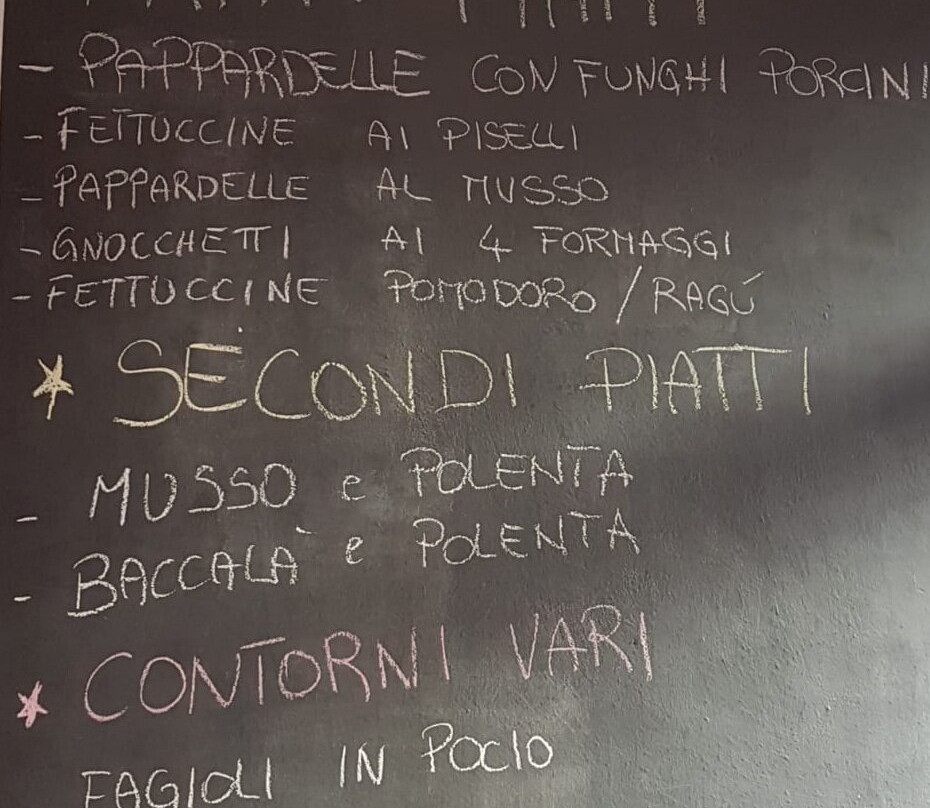 - PAPPARDELLE CON FUNGHI PORCINI
- FETTUCCINE AI PISELLI
- PAPPARDELLE AL MUSSO
- GNOCCHETTI AI 4 FORMAGGI
- FETTUCCINE POMODORO / RAGÚ
* SECONDI PIATTI
- MUSSO e POLENTA
- BACCALÀ e POLENTA
* CONTORNI VARI
FAGIOLI IN POCIO